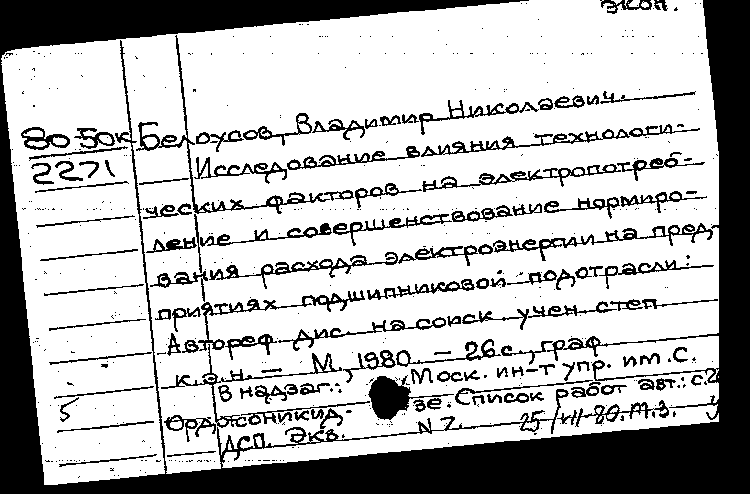 экон.
80-50к Белоусов, Владимир Николаевич.
2271 Исследование влияния технологи-
ческих факторов на электропотреб-
ление и совершенствование нормиро-
вания расхода электроэнергии на пред-
приятиях подшипниковой подотрасли:
Автореф. дис. на соиск. учен. степ.
к.э.н. – М., 1980. – 26 с., граф.
В надзаг.: Моск. ин-т упр. им. С.
5 Орджоникид- зе. Список работ авт.: с.
ДСП. Экз. N 7. 25/VII-80. М.З.